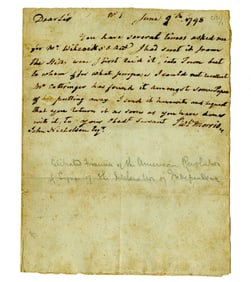 Dear Sir June 9th 1798
You have several times asked me
for Mr Wilcocks's that I had sent it from
the Hills were I first read it, into Town but
to whom or for what purpose I could not recollect
Mr has found it amongst some Papers
of putting away. I send it herewith and request
that you return it as soon as you have done
with it, to your Obedt Servant Robt Morris
John Nicholson Esqr
Financier of the American Revolution
& Signer of the Declaration of Independence